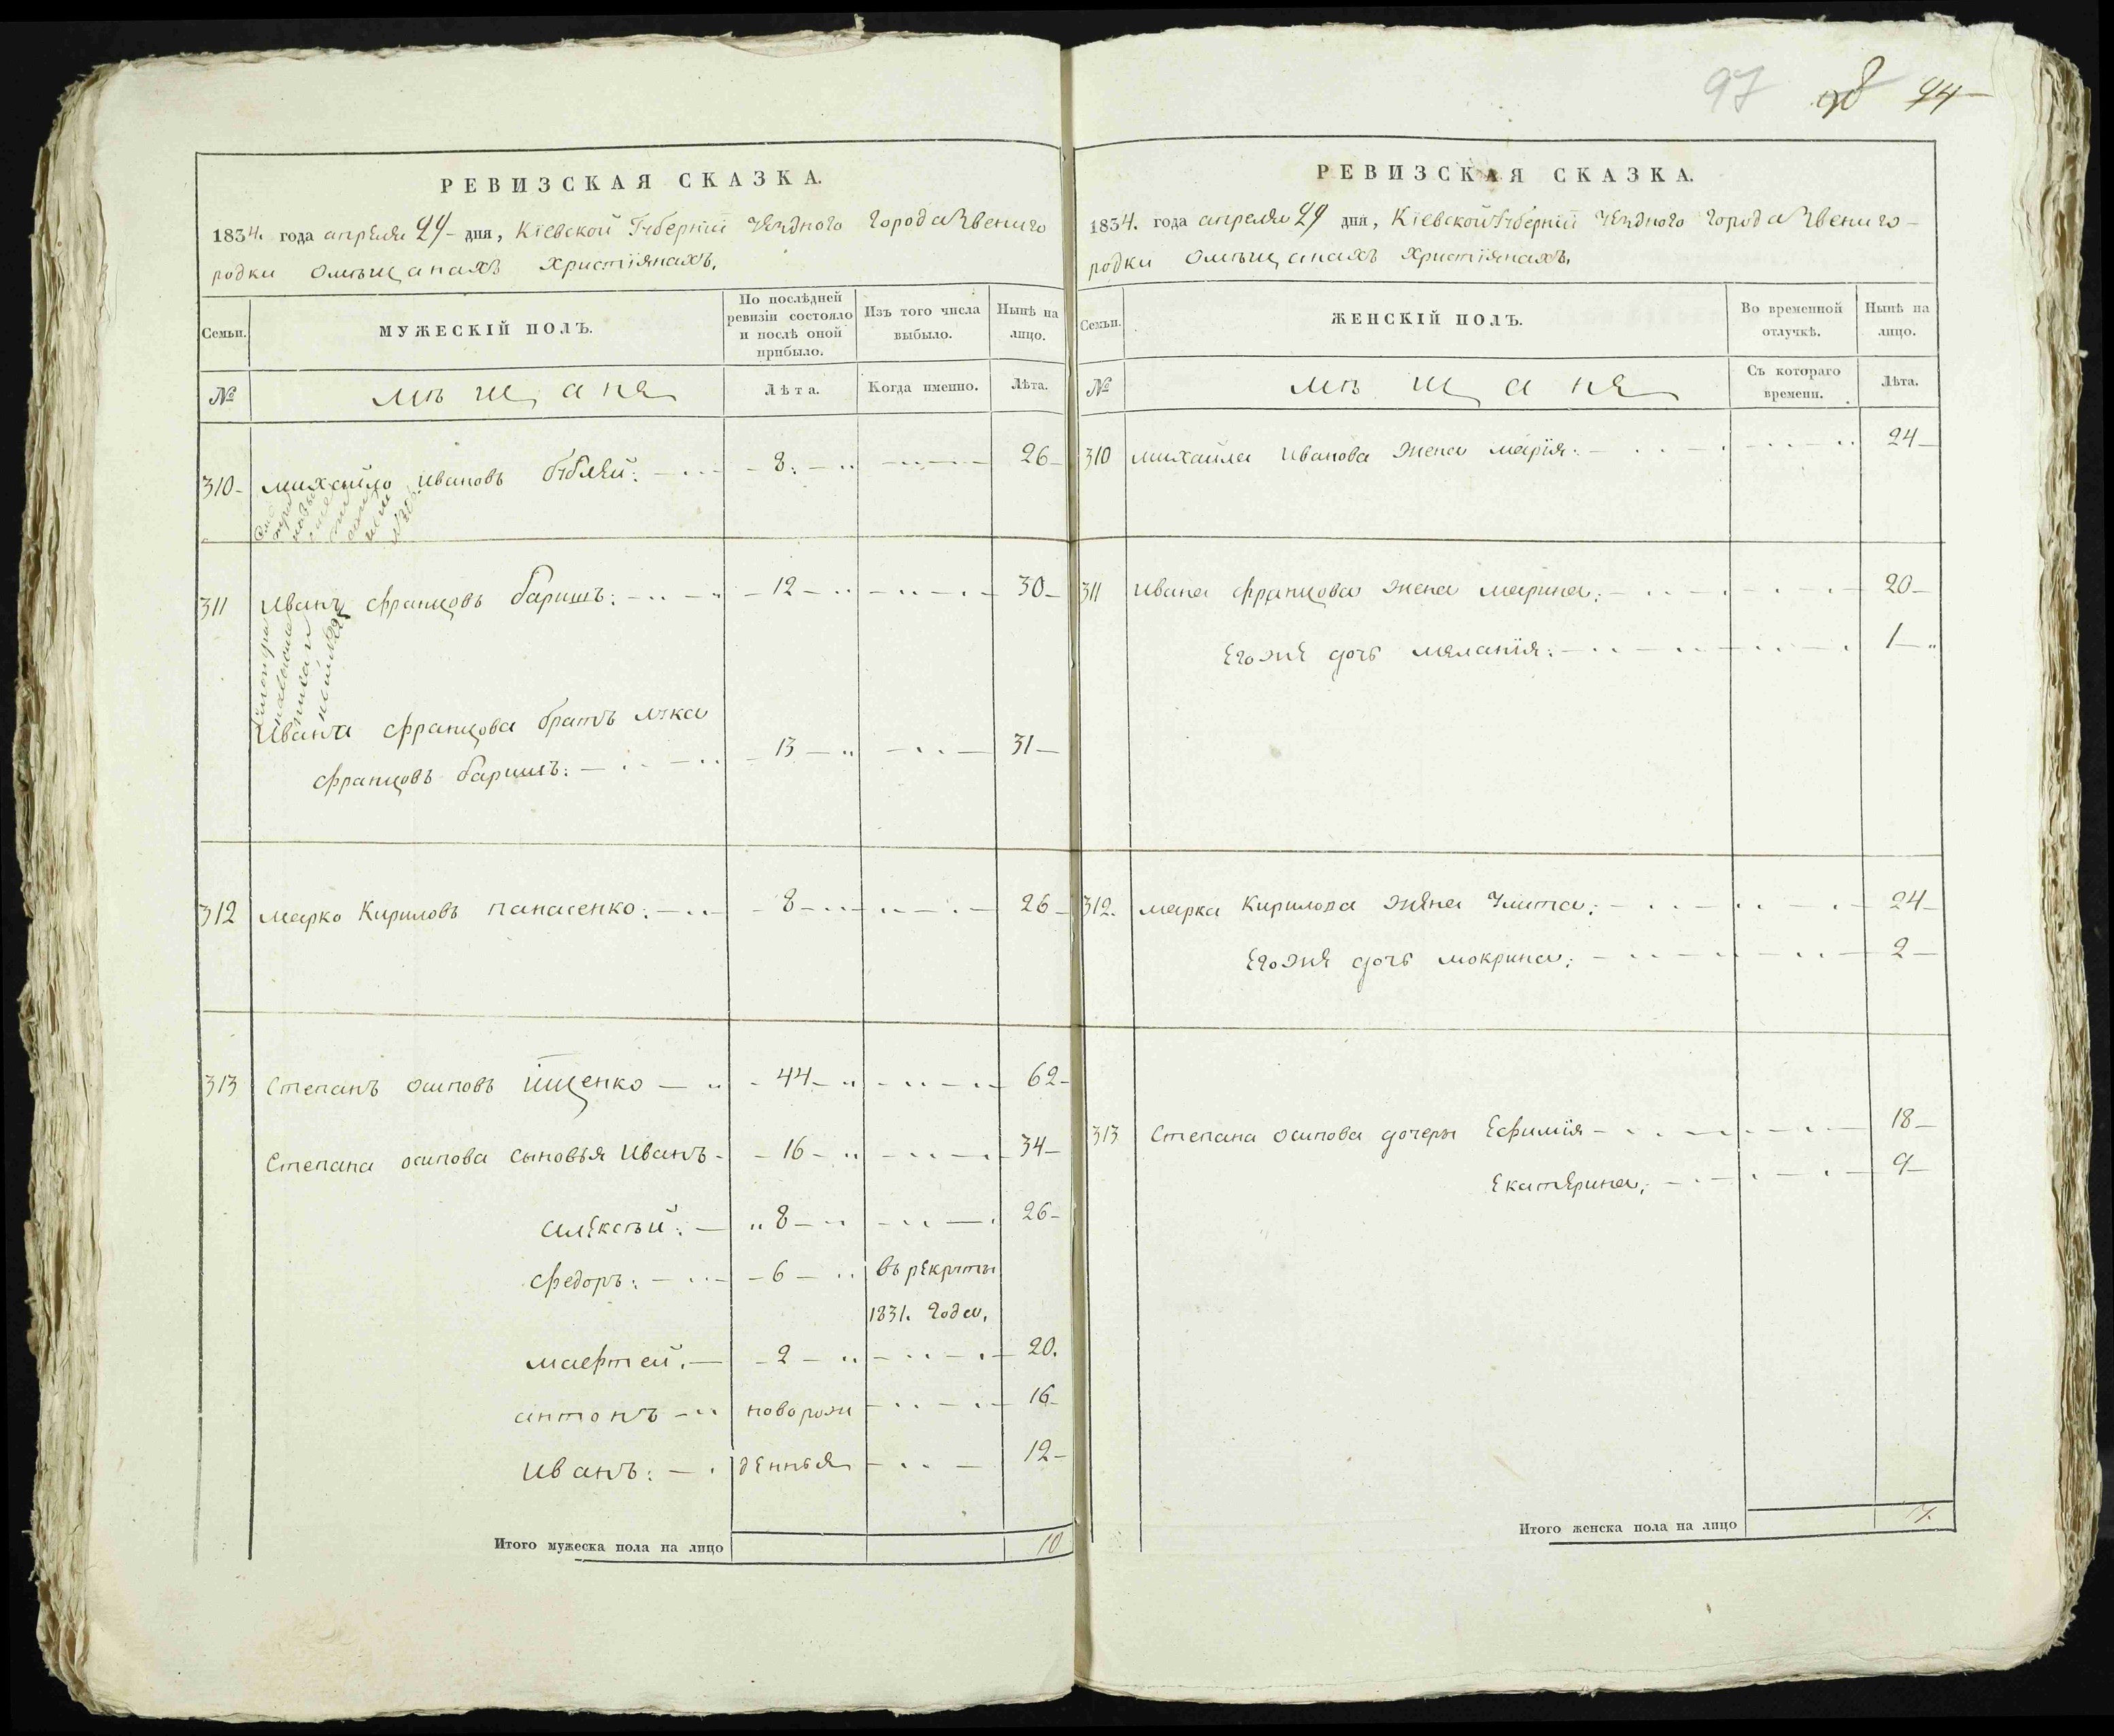 97 98 94
РЕВИЗСКАЯ СКАЗКА.
1834. года апреля 29 дня, Кіевской Губерніи уезднаго города Звениго
родки омѣщанахъ христіянахъ.
Семьи.
МУЖЕСКІЙ ПОЛЪ.
По послѣдней ревизіи состояло и послѣ оной прибыло.
Изъ того числа выбыло.
Нынѣ на лицо.
№
мѣщане
Лѣта.
Когда именно.
Лѣта.
310 Михайло Ивановъ 8 26
311 Иванъ Францовъ Баришъ: 12 30
Ивана Францова братъ Лука
Францовъ Баришъ: 13 31
312 Марко Кириловъ Панасенко: 8 26
313 Степанъ Осиповъ Ищенко 44 62
Степана Осипова сыновья Иванъ 16 34
Алексѣй: 8 26
Федоръ: 6 въ рекруты
1831. года.
Мафтей. 2 20.
Антонъ новорож 16
Иванъ: денныя 12
Итого мужеска пола на лицо 10
РЕВИЗСКАЯ СКАЗКА.
1834. года апреля 29 дня, Кіевской Губерніи уезднаго города Звениго-
родки омѣщанахъ христіянахъ.
Семьи.
ЖЕНСКІЙ ПОЛЪ.
Во временной отлучкѣ.
Нынѣ на лицо.
№
мѣщане
Съ котораго времени.
Лѣта.
310 Михайла Иванова жена Марія: 24
311 Ивана Францова жена Марина: 20
Егоже дочь Меланія: 1
312. Марка Кирилова жена Улита: 24
Егоже дочь Мокрина: 2
313 Степана Осипова дочеры Ефимія 18
Екатерина: 9
Итого женска пола на лицо 7.